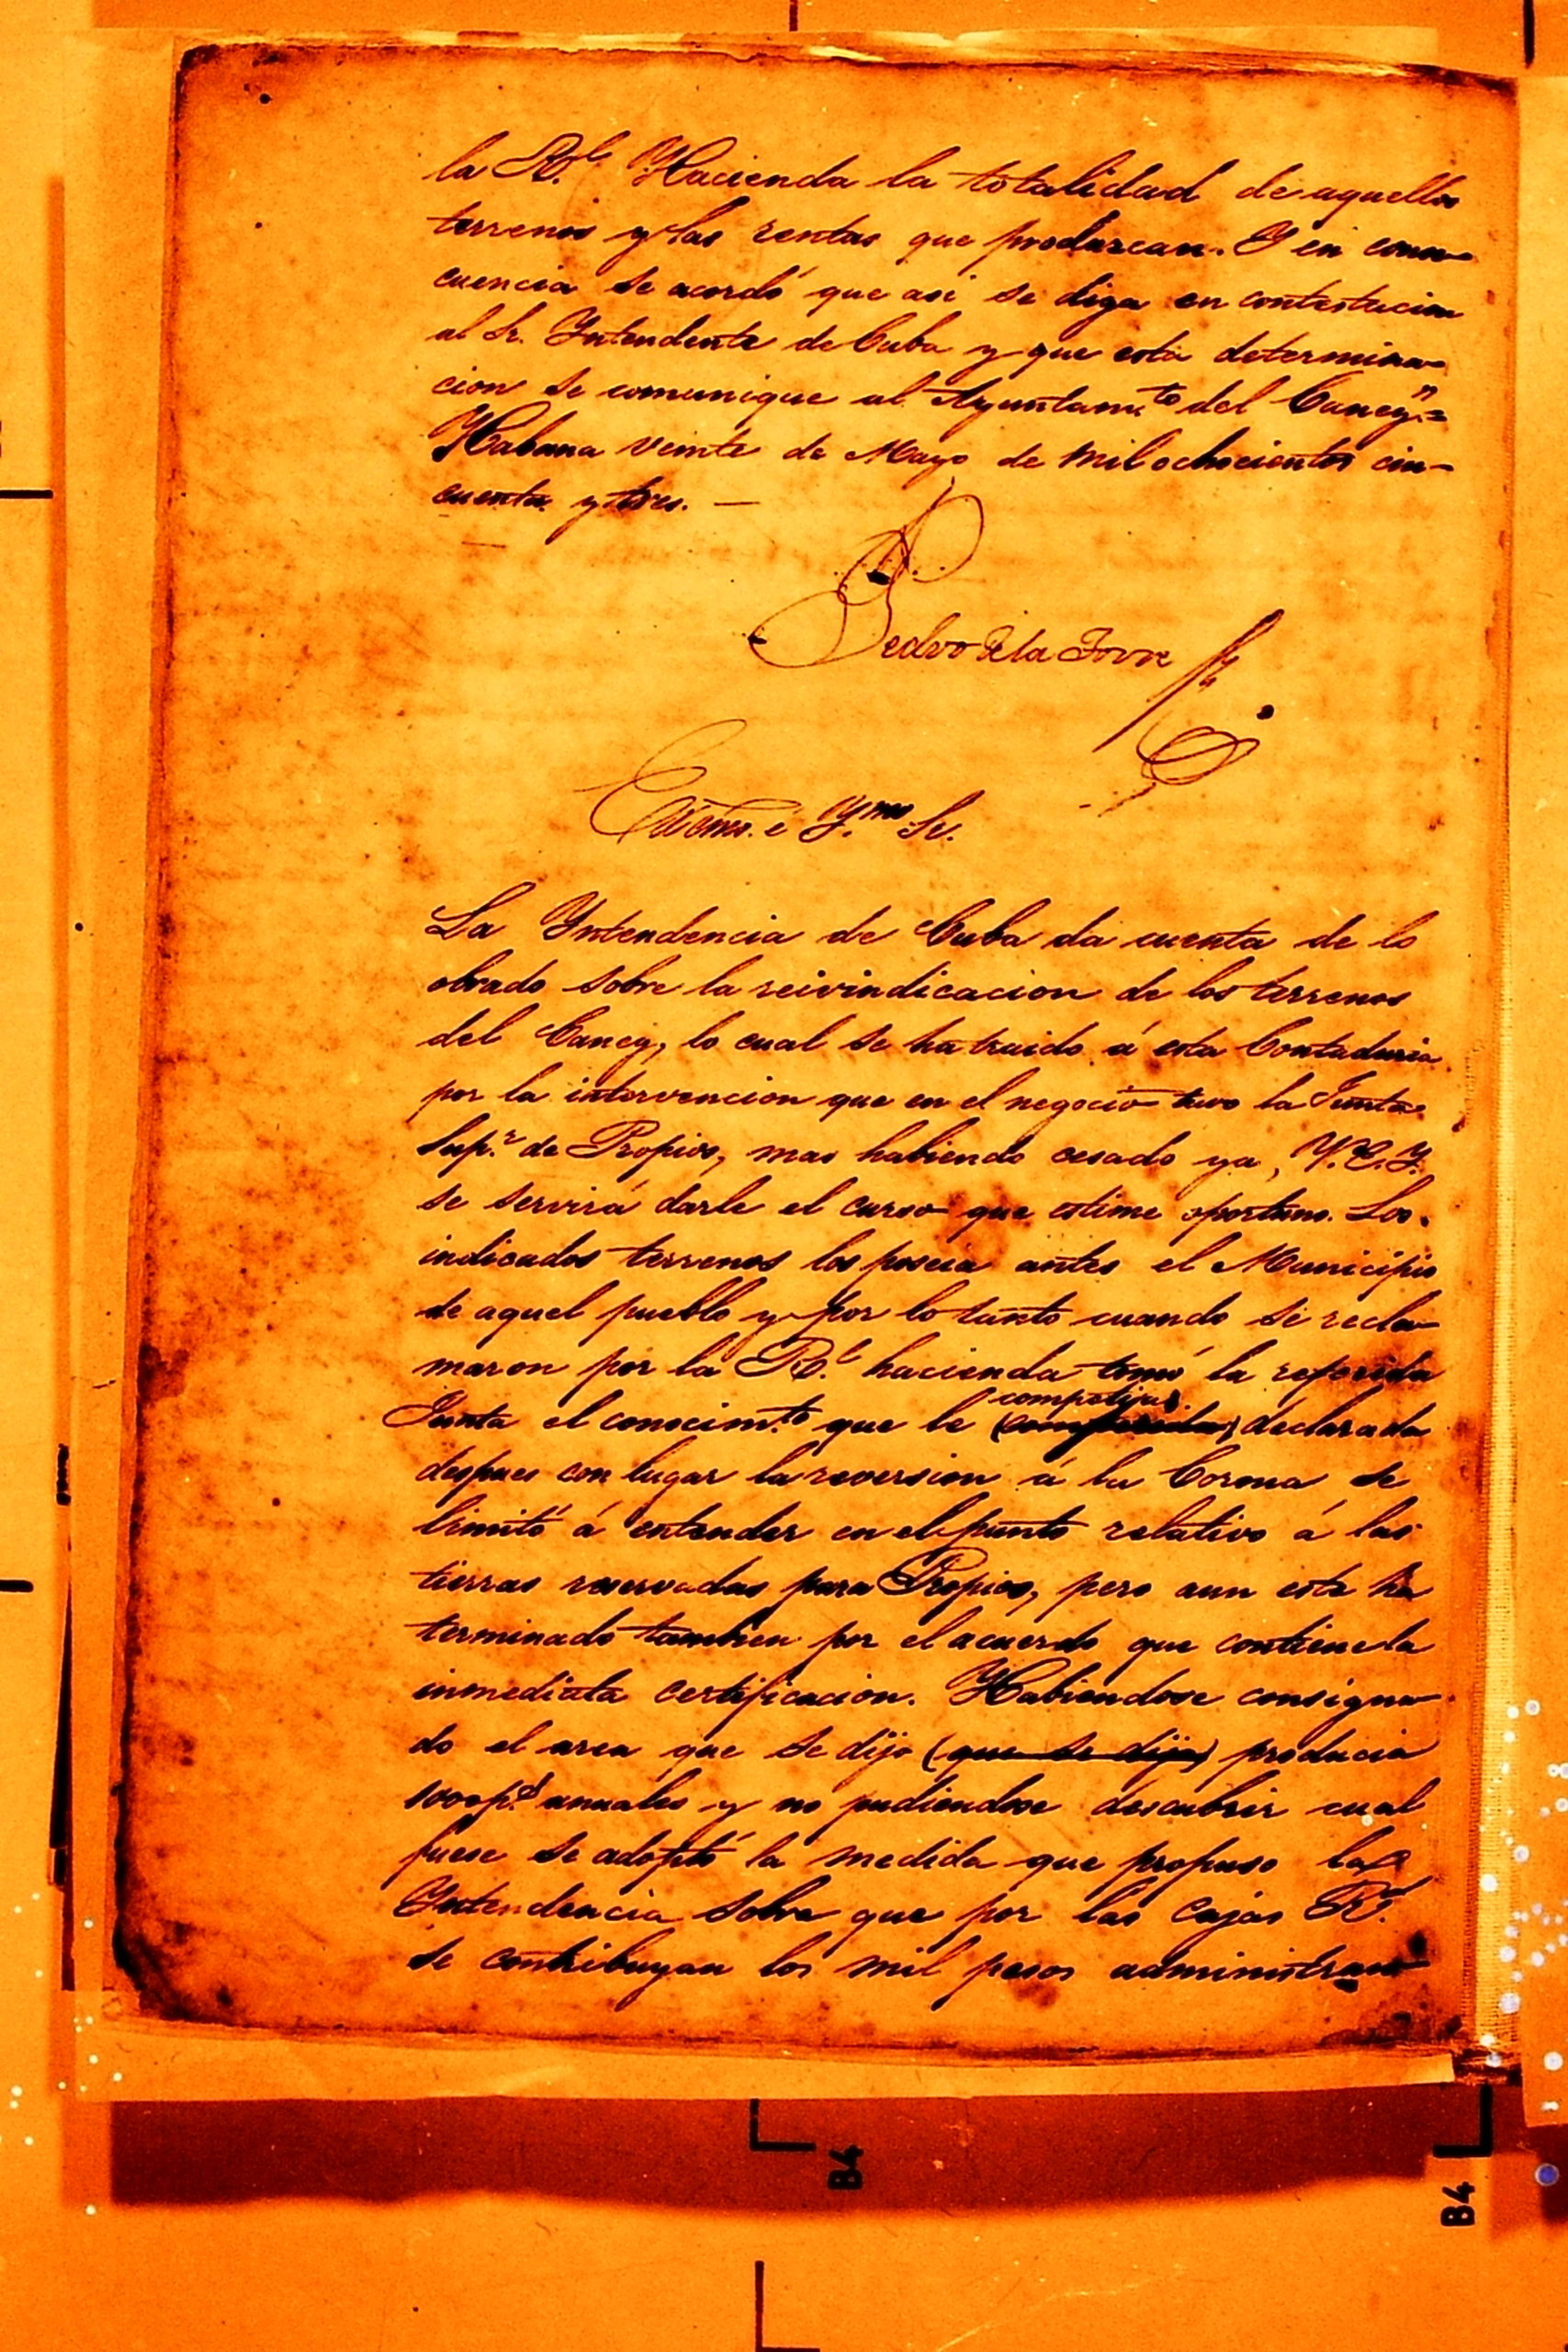 la R.l Hacienda la totalidad de aquellos
terrenos y las rentas que produzcan. Y en conse-
cuencia se acordó que asi se diga en contestacion
al Sr. Yntendente de Cuba y que esta determina-
cion se comunique al Ayuntam.to del Caney =
Habana veinte de Mayo de mil ochocientos cin-
cuenta y tres. —
Pedro de la Torre
Excmo. é Y.mo Sr.
La Yntendencia de Cuba da cuenta de lo
obrado sobre la reivindicacion de los terrenos
del Caney, lo cual se ha traido á esta Contaduria
por la intervencion que en el negocio tuvo la Junta
Sup.r de Propios, mas habiendo cesado ya, V.E.Y.
se servirá darle el curso que estime oportuno. Los
indicados terrenos los poseia antes el Municipio
de aquel pueblo y por lo tanto cuando se recla-
maron por la R.l hacienda tomó la referida
Junta el conocim.to que le competia declarada
despues con lugar la reversion á la Corona se
limitó á entender en el punto relativo á las
tierras reservadas para Propios, pero aun esta ha
terminado tambien por el acuerdo que contiene la
inmediata certificacion. Habiendose consigna-
do el area que se dijo (que se dijo) producia
1000 p.s anuales y no pudiendose descubrir cual
fuese se adoptó la medida que propuso la
Yntendencia sobre que por las Cajas R.s
se contribuyan los mil pesos administran-
B4
B4